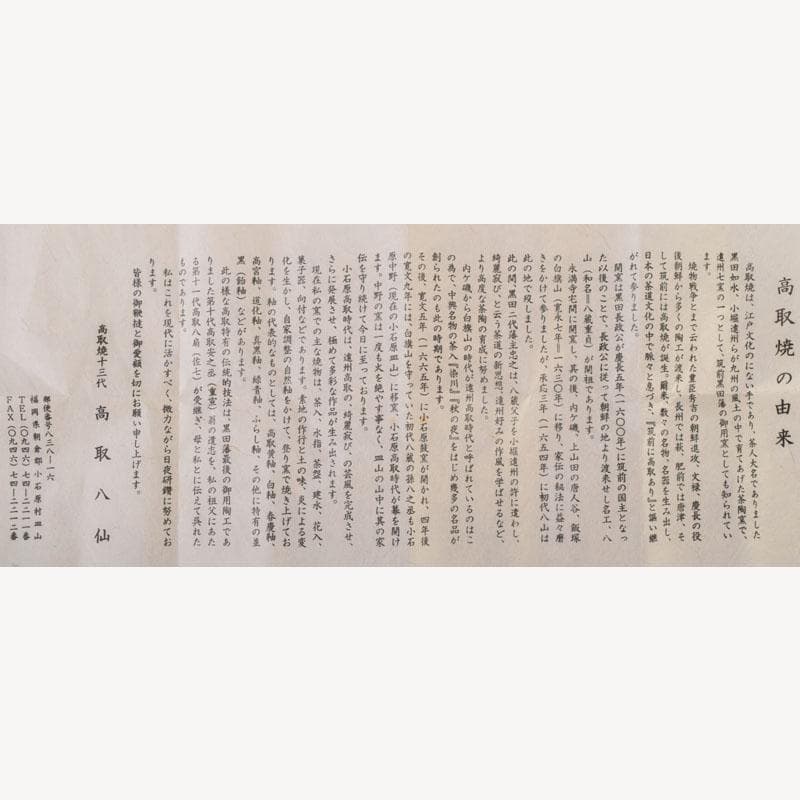 高取焼の由来
高取焼は、江戸文化のにない手であり、茶人大名でありました
黒田如水、小堀遠州らが九州の風土の中で育てあげた茶陶窯で、
遠州七窯の一つとして、筑前黒田藩の御用窯としても知られてい
ます。
焼物戦争とまで云われた豊臣秀吉の朝鮮進攻、文禄、慶長の役
後朝鮮から多くの陶工が渡来し、長州では萩、肥前では唐津、そ
して筑前には高取焼が誕生。爾来、数々の名物、名器を生み出し、
日本の茶道文化の中で脈々と息づき、『筑前に高取あり』と謳い継
がれて参りました。
開窯は黒田長政公が慶長五年(一六〇〇年)に筑前の国主となっ
た以後のことで、長政公に従って朝鮮の地より渡来せし名工、八
山(和名=八蔵重貞)が開祖であります。
永満寺宅間に開窯し、其の後、内ケ磯、上山田の唐人谷、飯塚
の白旗山(寛永七年=一六三〇年)に移り、家伝の秘法に益々磨
きをかけて参りましたが、承応三年(一六五四年)に初代八山は
此の地で歿しました。
此の間、黒田二代藩主忠之は、八蔵父子を小堀遠州の許に遣わし、
綺麗寂び、と云う茶道の新思想、遠州好みの作風を学ばせるなど、
より高度な茶陶の育成に努めました。
内ケ磯から白旗山の時代が遠州高取時代と呼ばれているのはこ
の為で、中興名物の茶入『染川』『秋の夜』をはじめ幾多の名品が
創られたのも此の時期であります。
その後、寛文五年(一六六五年)に小石原鼓窯が開かれ、四年後
の寛文九年には、白旗山を守っていた初代八蔵の孫八之丞も小石
原中野(現在の小石原皿山)に移窯、小石原高取時代が幕を開け
ます。中野の窯は一度も火を絶やす事なく、皿山の山中に其の家
伝を守り続けて今日に至っております。
小石原高取時代は、遠州高取の、綺麗寂び、の芸風を完成させ、
さらに発展させ、極めて多彩な作品が生み出されます。
現在私の窯での主な焼物は、茶入、水指、茶盌、建水、花入、
菓子器、向付などであります。素地の作行と土の味、炎による変
化を生かし、自家調整の自然釉をかけて、登り窯で焼き上げてお
ります。釉の代表的なものとしては、高取黄釉、白釉、春慶釉、
高宮釉、道化釉、真黒釉、緑青釉、ふらし釉、その他に特有の並
黒(飴釉)などがあります。
此の様な高取特有の伝統的技法は、黒田藩最後の御用陶工であ
りました第十代高取安之丞(重室)翁の遺志を、私の祖父にあた
る第十一代高取八扇(佐七)が受継ぎ、母と私とに伝えて呉れた
ものであります。
私はこれを現代に活かすべく、微力ながら日夜研鑽に努めてお
ります。
皆様の御鞭撻と御愛顧を切にお願い申し上げます。
高取焼十三代 高取八仙
郵便番号八三八―一六
福岡県朝倉郡小石原村皿山
TEL(〇九四六)七四―二一一番
FAX(〇九四六)七四―二二一二番